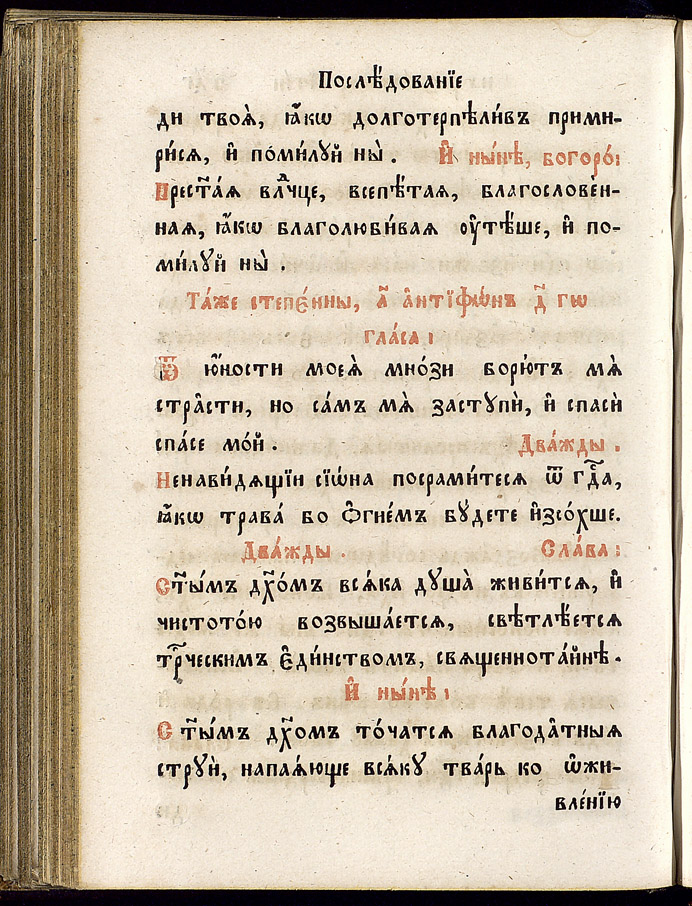 Послѣ́дованїе
ди твоѧ̀, ꙗ҆́кѡ долготерпѣли́въ прими-
ри́сѧ, и҆ поми́лꙋй ны̀. И҆ ны́нѣ, богоро́:
Прест҃а́ѧ влⷣчце, всепѣ́таѧ, благослове́н-
наѧ, ꙗ҆́кѡ благолюби́ваѧ ᲂу҆тѣ́ше, и҆ по-
ми́лꙋй ны̀.
Та́же степе́нны, а҃ а҆нтїфѡ́нъ д҃ гѡ
гла́са:
Ѿ ю҆́ности моеѧ̀ мно́зи бо́рютъ мѧ̀
стра́сти, но са́мъ мѧ̀ застꙋпѝ, и҆ спасѝ
спа́се мо́й. Два́жды.
Ненави́дѧщїи сїѡ́на посрами́тесѧ ѿ гдⷭ҇а,
ꙗ҆́кѡ трава́ бо ѻ҆гне́мъ бꙋ́дете и҆зсо́хше.
Два́жды. Сла́ва:
Ст҃ы́мъ дх҃о́мъ всѧ́ка дꙋша̀ живи́тсѧ, и҆
чистото́ю возвыша́етсѧ, свѣтлѣ́етсѧ
трⷪ҇ческимъ є҆ди́нствомъ, свѧщеннота́йнѣ.
И҆ ны́нѣ:
Ст҃ы́мъ дх҃омъ то́чатсѧ благода̑тныѧ
стрꙋи̑, напаѧ́юще всѧ́кꙋ тва́рь ко ѡ҆жи-
вле́нїю